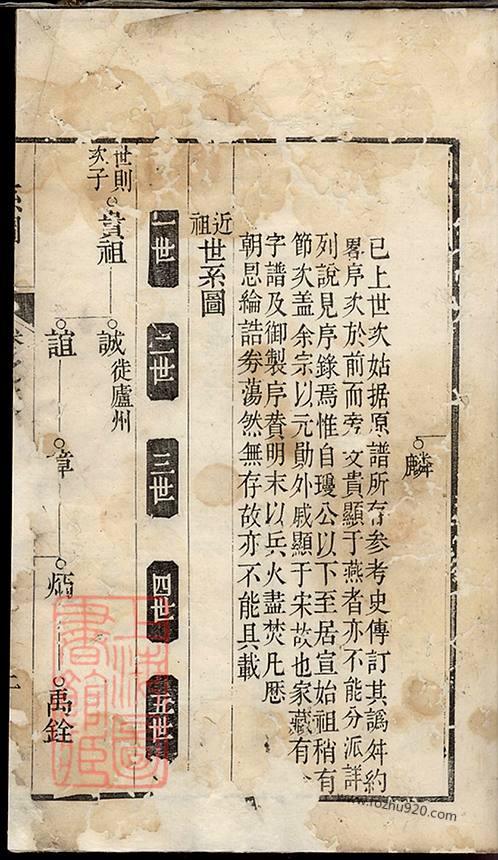 麟
已上世次姑据原譜所存參考史傳訂其譌舛約
畧序次於前而旁支貴顯于燕者亦不能分派詳
列說見序錄焉惟自瓊公以下至居宣始祖稍有
節次盖余宗以元勛外戚顯于宋故也家藏有
字譜及御製序賛明末以兵火盡焚凡歷
朝恩綸誥劵蕩然無存故亦不能具載
近祖世系圖
一世 二世 三世 四世 五世
世則次子貴祖 誠徙廬州
誼 章 炳 禹銓
www.fozhu920.com